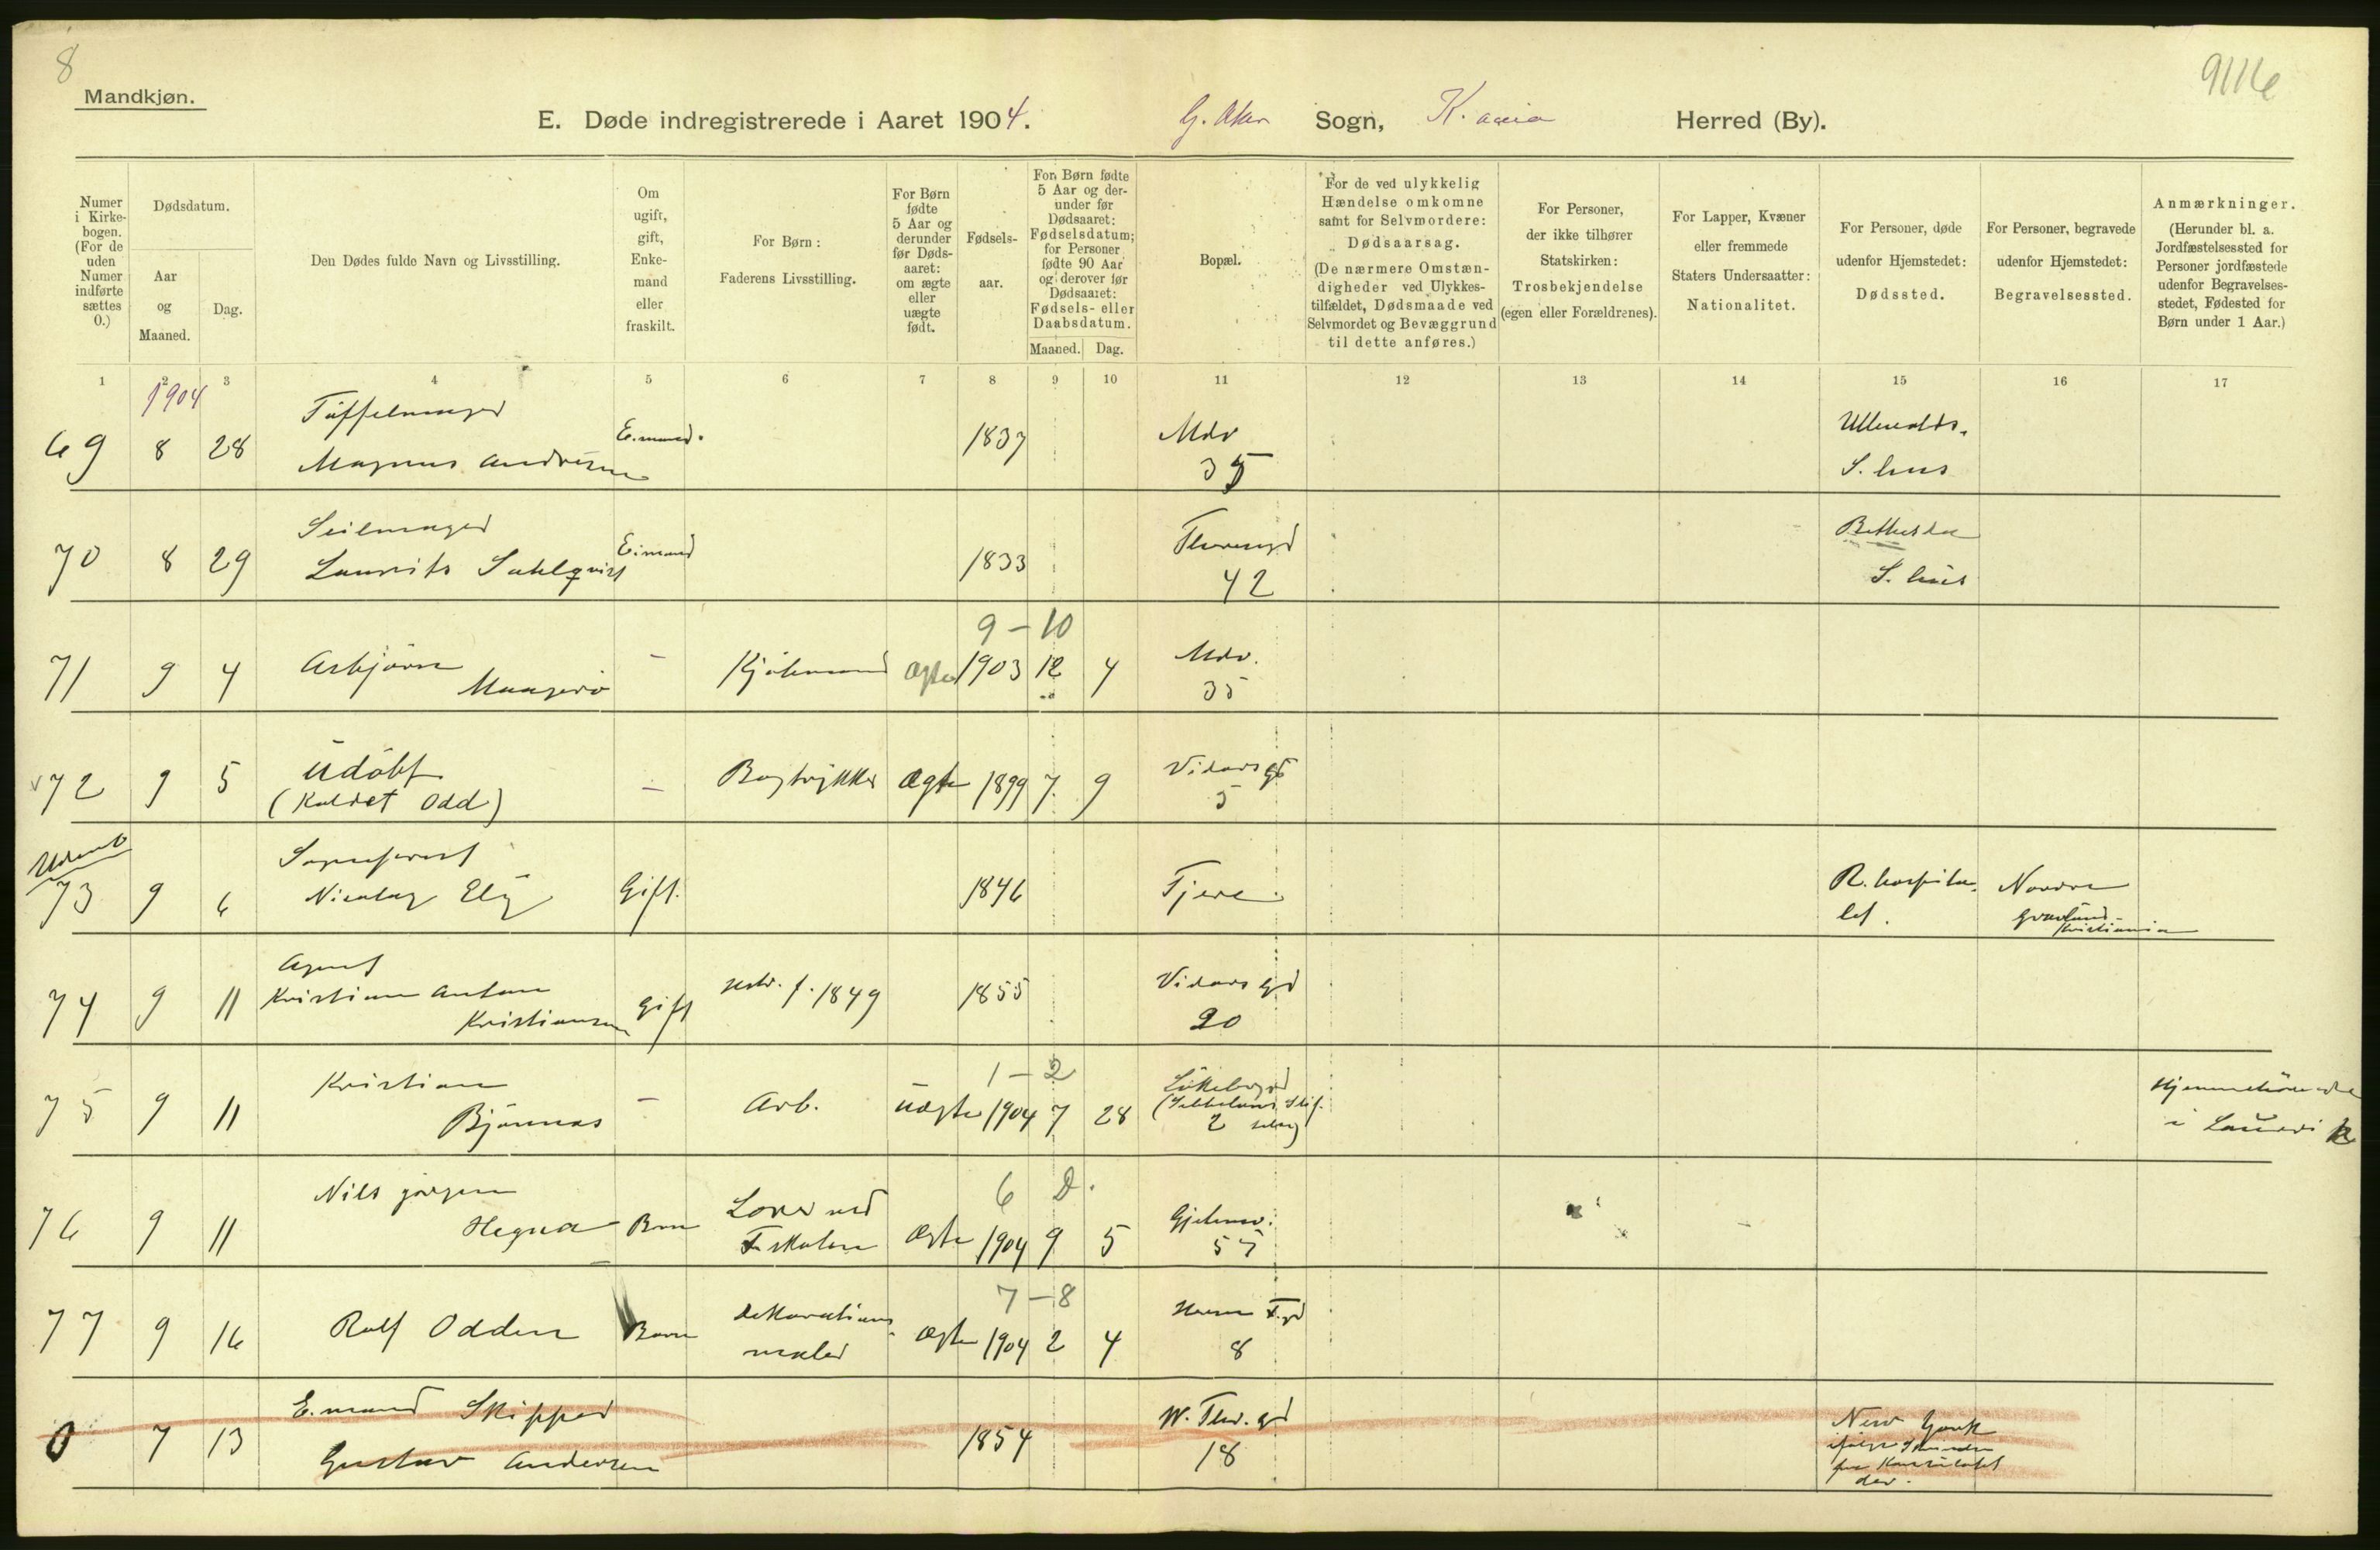 8
9116
Mandkjøn.
E. Døde indregistrerede i Aaret 1904. G. Aker Sogn, K.ania Herred (By).
Numer
i Kirke-
bogen.
(For de
uden
Numer
indførte
sættes
0.)
Dødsdatum.
Aar
og
Maaned.
Dag.
Den Dødes fulde Navn og Livsstilling.
Om
ugift,
gift,
Enke-
mand
eller
fraskilt.
For Børn:
Faderens Livsstilling.
For Børn
fødte
5 Aar og
derunder
før Døds-
aaret:
om ægte
eller
uægte
født.
Fødsels-
aar.
For Børn fødte
5 Aar og der-
under før
Dødsaaret:
Fødselsdatum;
for Personer
fødte 90 Aar
og derover før
Dødsaaret:
Fødsels- eller
Daabsdatum.
Maaned. Dag.
Bopæl.
For de ved ulykkelig
Hændelse omkomne
samt for Selvmordere:
Dødsaarsag.
(De nærmere Omstæn-
digheder ved Ulykkes-
tilfældet, Dødsmaade ved
Selvmordet og Bevæggrund
til dette anføres.)
For Personer,
der ikke tilhører
Statskirken:
Trosbekjendelse
(egen eller Forældrenes).
For Lapper, Kvæner
eller fremmede
Staters Undersaatter:
Nationalitet.
For Personer, døde
udenfor Hjemstedet:
Dødssted.
For Personer, begravede
udenfor Hjemstedet:
Begravelsessted.
Anmærkninger.
(Herunder bl. a.
Jordfæstelsessted for
Personer jordfæstede
udenfor Begravelses-
stedet, Fødested for
Børn under 1 Aar.)
1 2 3 4 5 6 7 8 9 10 11 12 13 14 15 16 17
1904
Tøffelmager
69 8 28 Magnus Andresen E.mand. 1837 Mdv
35
Ullevolds.
S. hus
Seilmager
70 8 29 Laurits Sahlqvist E.mand 1833
42
Bethesda
S. hus
9 - 10
71 9 4 Asbjørn - Kjøbmand Ægte 1903 12 4 Mdv.
35
72 9 5 Udøbt - Bogtrykker Ægte 1899 7 9 Vidarsgd
(Kaldet Odd) 5
73 9 6 Nicolay Gift. 1846
R. hospita-
let.
Nordre
Gravlund
Kristiania
Agent
74 9 11 Kristian Anton Gift f. 1849 1855 Vidarsgd
Kristiansen 20
1 - 2
75 9 11 Kristian - Arb. Uægte 1904 7 28
Bjønnas 2
Hjemmehørende
i Laurvik
6 D.
76 9 11 Nils Jørgen
Hegna Barn Lærer ved
F. skolen Ægte 1904 9 5
55
7 - 8
77 9 16 Rolf Odden Barn Dekorations-
maler Ægte 1904 2 4
8
E.mand Skipper
0 7 13 Gustav Andersen 1854 W. Thr. gd
18
New York
ifølge Skrivelse
fra Konsulatet
der.